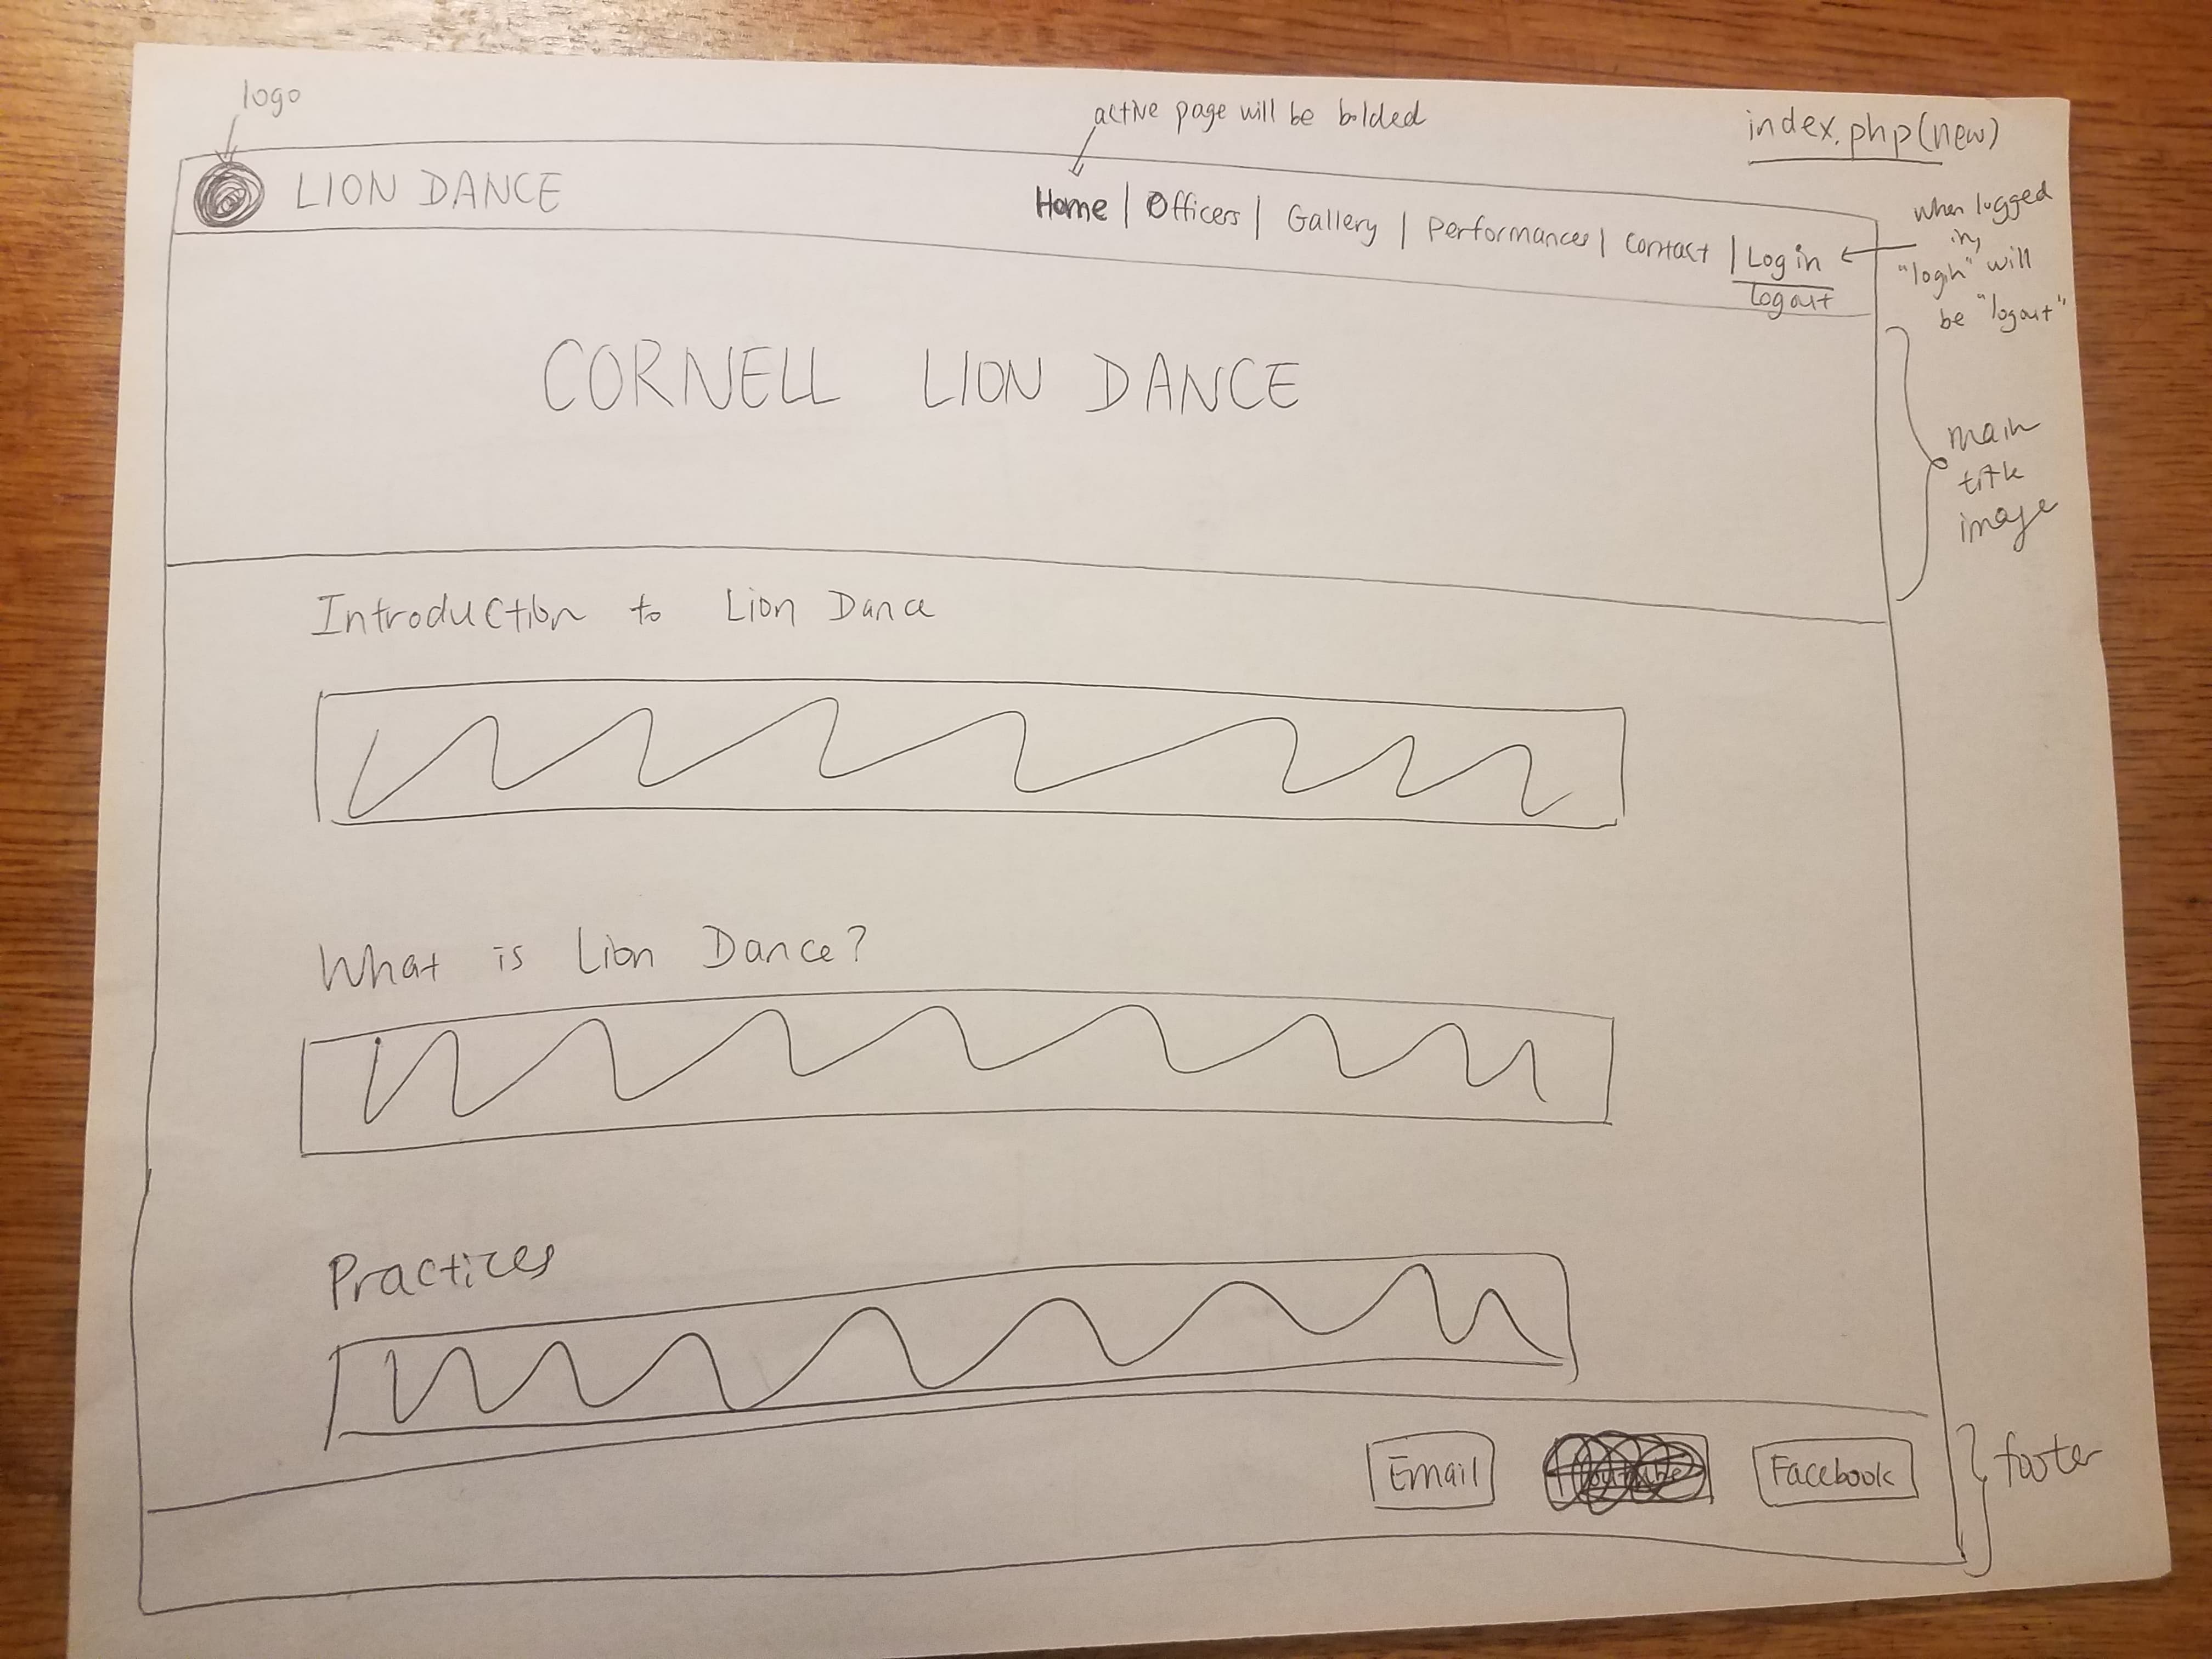 logo
active page will be bolded
index.php(new)
LION DANCE
Home | Officers | Gallery | Performances | Contact | Log in
logout
when logged
in,
"login" will
be "logout"
CORNELL LION DANCE
main
title
image
Introduction to Lion Dance
What is Lion Dance?
Practices
Email
Facebook
footer